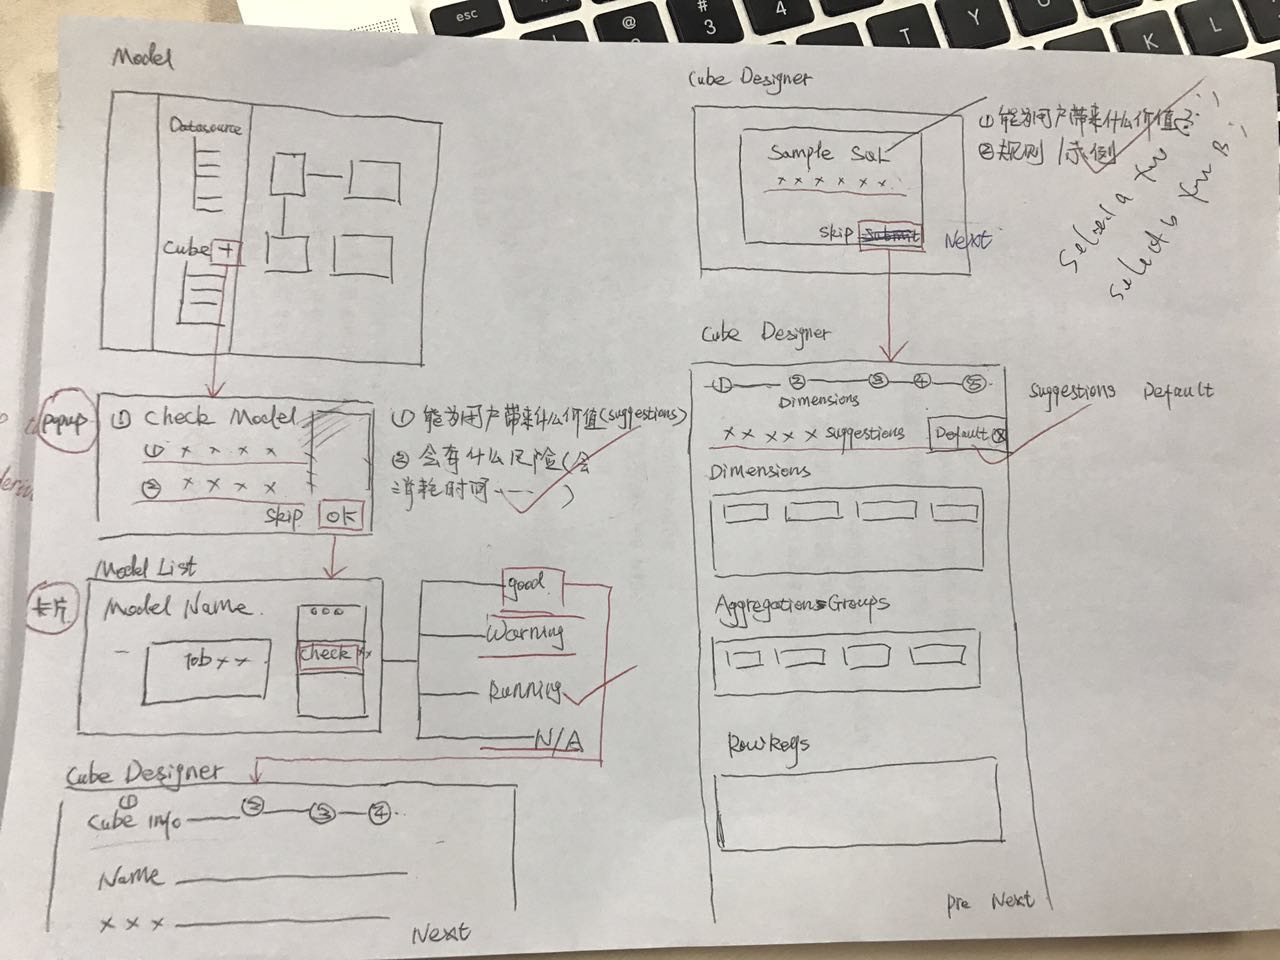 Model
Datasource
Cube +
popup
① Check Model
① x x x x
② x x x x
Skip OK
① 能为用户带来什么价值(suggestions)
② 会有什么风险(会
消耗时间……)
Model List
卡片
Model Name
Job x x
check xx
good
Warning
Running
N/A
Cube Designer
①
Cube info ② ③ ④
Name
x x x
Next
Cube Designer
Sample SQL
x x x x x x
Skip Submit Next
① 能为用户带来什么价值
② 规则/示例
Cube Designer
① ② ③ ④ ⑤
Dimensions
x x x x x suggestions Default
Suggestions Default
Dimensions
Aggregation Groups
Rowkeys
Pre Next
esc
@
2
#
3
$
4
T
Y
U
K
L